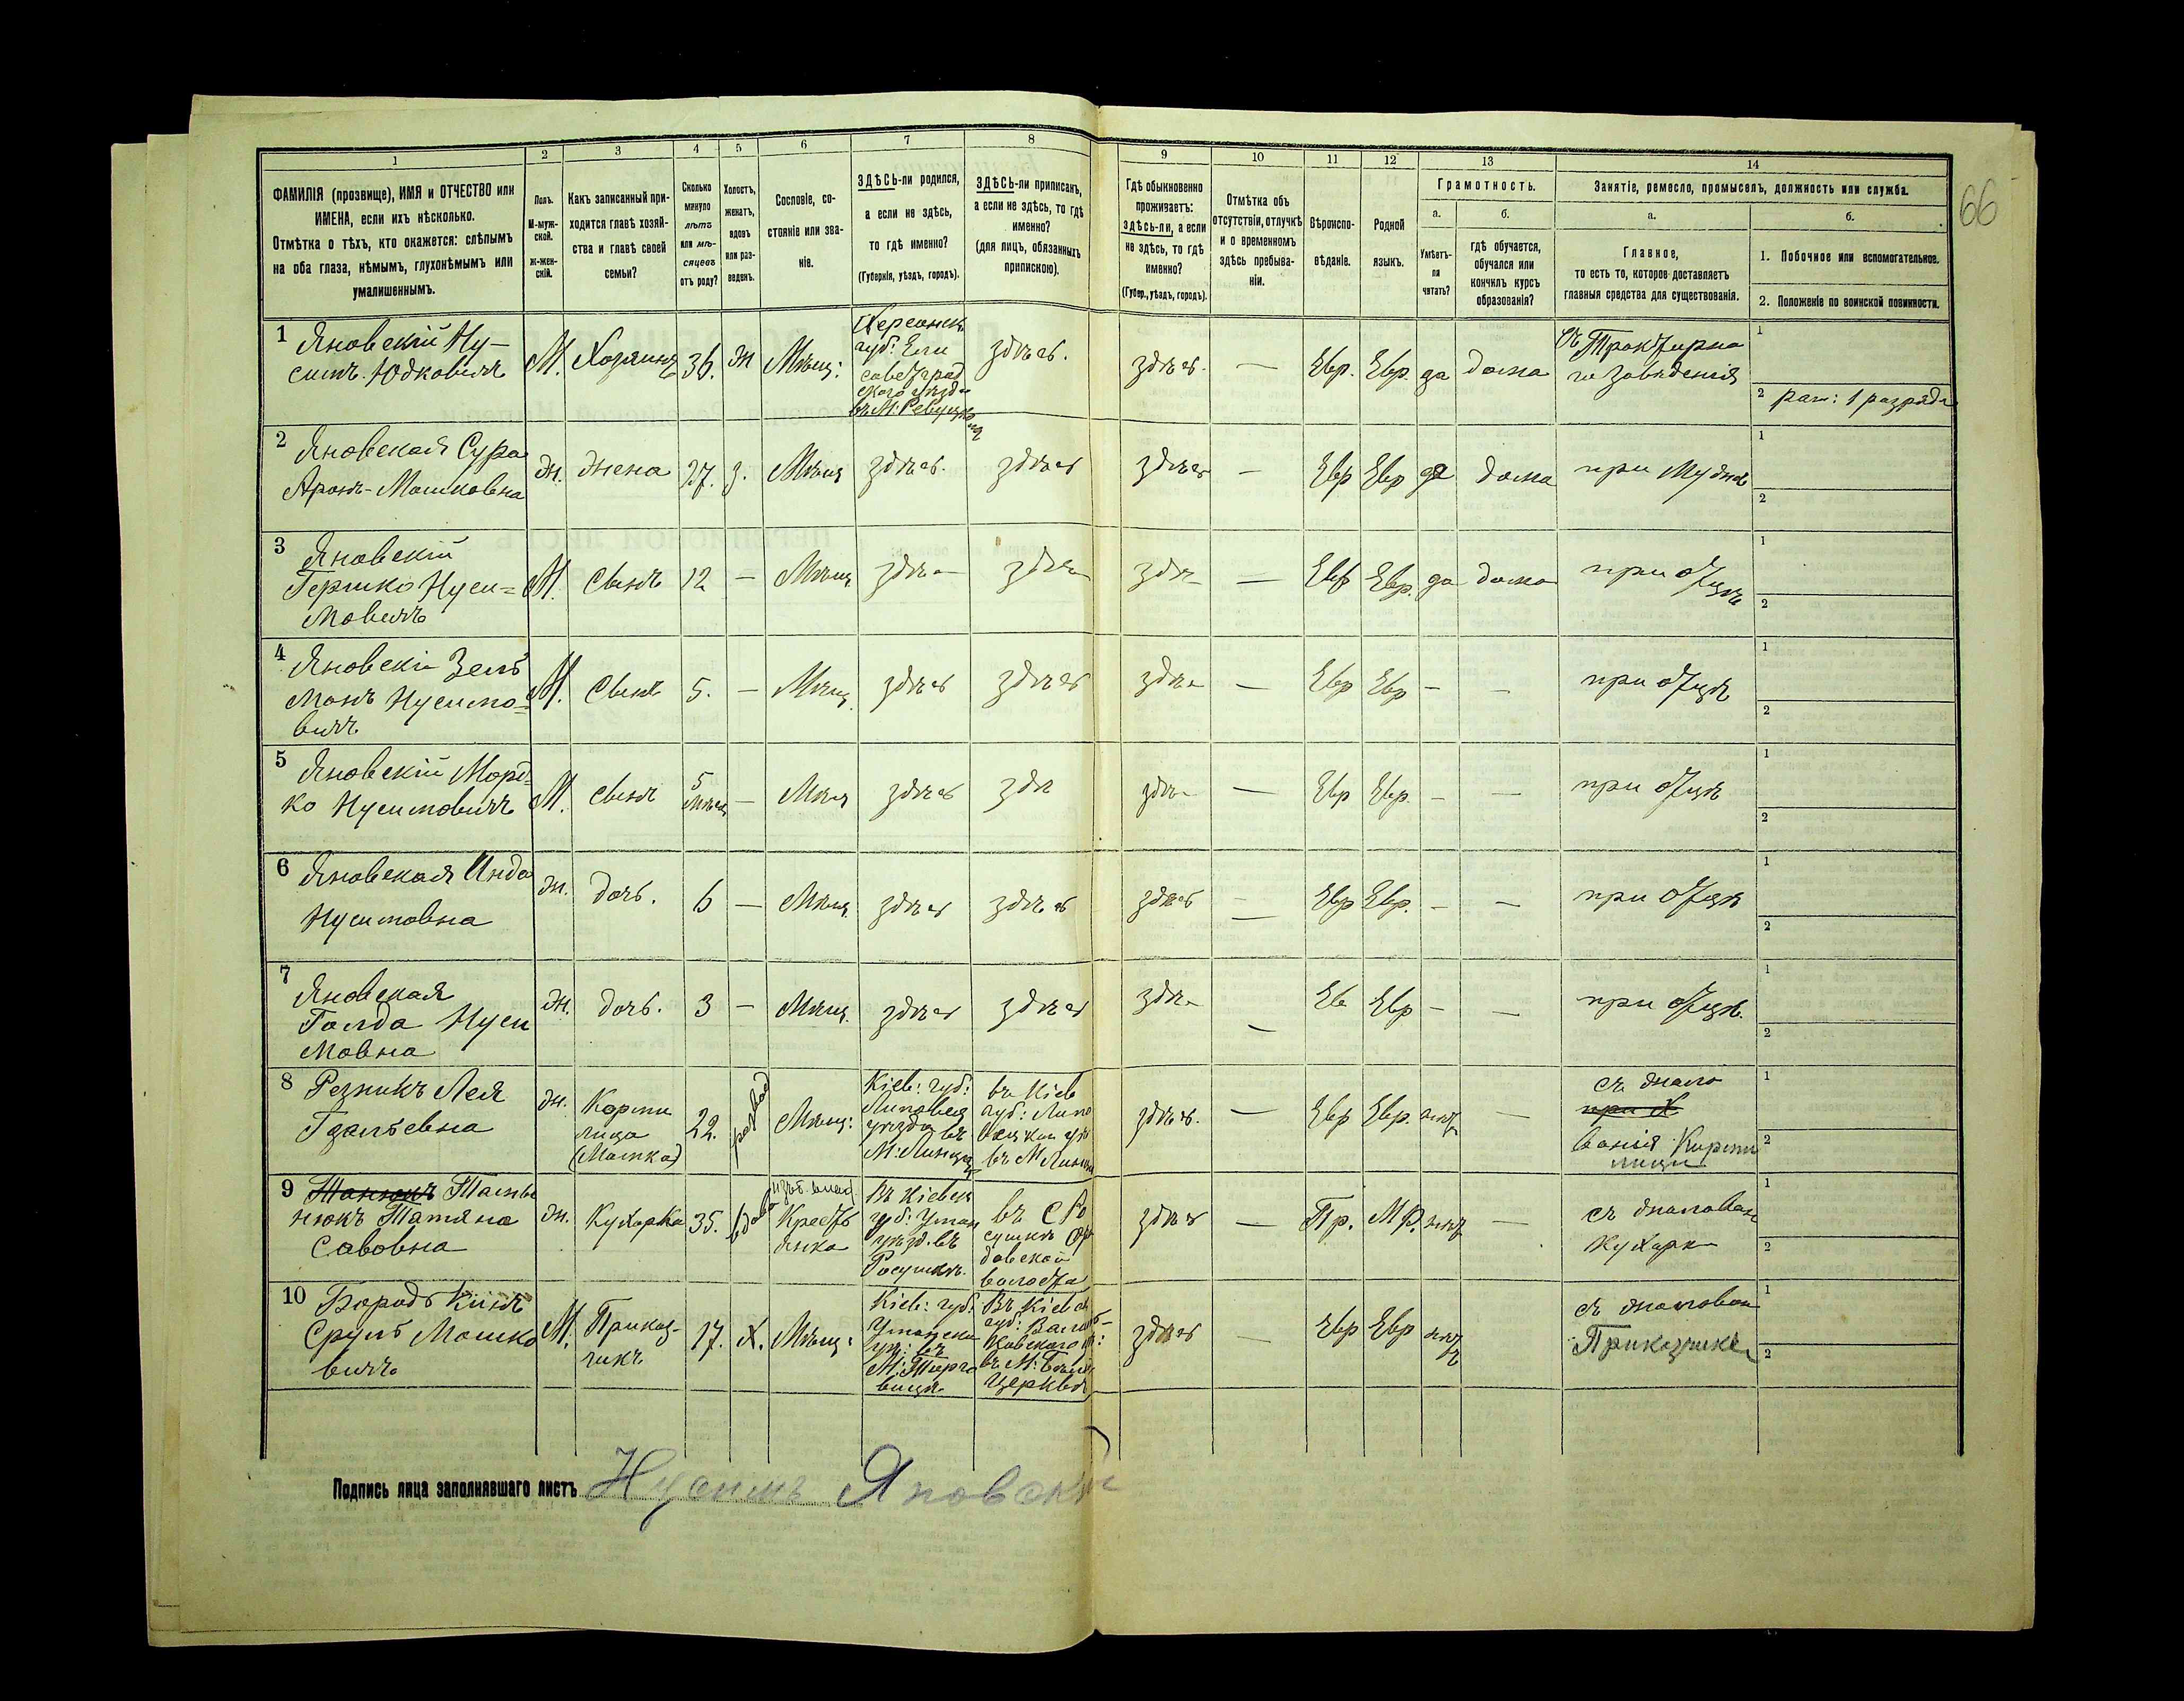 66
1 2 3 4 5 6 7 8 9 10 11 12 13 14
ФАМИЛІЯ (прозвище), ИМЯ и ОТЧЕСТВО или
ИМЕНА, если ихъ нѣсколько.
Отмѣтка о тѣхъ, кто окажется: слѣпымъ
на оба глаза, нѣмымъ, глухонѣмымъ или
умалишеннымъ.
Полъ.
М-муж-
ской.
ж-жен-
скій.
Какъ записанный при-
ходится главѣ хозяй-
ства и главѣ своей
семьи?
Сколько
минуло
лѣтъ
или мѣ-
сяцевъ
отъ роду?
Холостъ,
женатъ,
вдовъ
или раз-
веденъ.
Сословіе, со-
стояніе или зва-
ніе.
ЗДѢСЬ-ли родился,
а если не здѣсь,
то гдѣ именно?
(Губернія, уѣздъ, городъ).
ЗДѢСЬ-ли приписанъ,
а если не здѣсь, то гдѣ
именно?
(для лицъ, обязанныхъ
припискою).
Гдѣ обыкновенно
проживаетъ:
здѣсь-ли, а если
не здѣсь, то гдѣ
именно?
(Губер., уѣздъ, городъ).
Отмѣтка объ
отсутствіи, отлучкѣ
и о временномъ
здѣсь пребыва-
ніи.
Вѣроиспо-
вѣданіе.
Родной
языкъ.
Грамотность.
а.
Умѣетъ-
ли
читать?
б.
гдѣ обучается,
обучался или
кончилъ курсъ
образованія?
Занятіе, ремесло, промыселъ, должность или служба.
а.
Главное,
то есть то, которое доставляетъ
главныя средства для существованія.
б.
1. Побочное или вспомогательное.
2. Положеніе по воинской повинности.
1 Яновскій Ну-
симъ Юдковичъ
М. Хозяинъ 36. Ж Мѣщ:
Херсонск
губ: Ели
саветград
скаго уѣзд
въ М:
здѣсь. здѣсь. — Евр. Евр. да дома
Трактирна
го Заведенія
1
2 рат: 1 разряда
2 Яновская Сура
Аронъ-Мошковна
ж. жена 27. з. Мѣщ здѣсь. здѣсь здѣсь — Евр Евр да дома при Мужѣ
1
2
3 Яновскій
Гершко Нуси=
мовичъ
М. Сынъ 12 — Мѣщ здѣ здѣ здѣ — Евр Евр. да дома при отцѣ
1
2
4 Яновскі Зель
манъ Нусимо=
вичъ
М. Сынъ 5. — Мѣщ здѣсь здѣсь здѣ — Евр Евр — — при отцѣ
1
2
5 Яновскій Морд=
ко Нусимовичъ
М. сынъ 5
мѣсяц — Мѣщ здѣсь здѣ здѣ — Евр Евр. — — при отцѣ
1
2
6 Яновская
Нусимовна
ж. дочь. 6 — Мѣщ здѣсь здѣсь здѣсь — Евр Евр. — — при отцѣ
1
2
7 Яновская
Голда Нуси
мовна
ж. дочь. 3 — Мѣщ. здѣсь здѣсь здѣ — Ев Евр — — при отцѣ.
1
2
8 Резникъ Лея
ж. Корми
лица
(Мамка)
22. развод Мѣщ:
Кіев: губ:
Липовец
уѣзда въ
М:Линцы
въ Кіев
губ: Липо
вецкаго уѣ
въ М Линцы
здѣсь. — Евр Евр. нѣт —
съ жало
при Х
ванія Корми
лицы
1
2
9 Татья
нюкъ Татяна
Савовна
ж. Кухарка 35. вдова
Крестъ
янка
Въ Кіевск
губ: Уман
уѣзд. въ
въ С
волости
здѣсь — Пр. М Р. нѣт —
съ жалован
Кухарк
1
2
10
Сруль Мошко
вичъ
М. Приказ-
чикъ
17. Х. Мѣщ:
Кіев: губ:
Уманска
уѣ: въ
М: Торго
вица
Въ Кіевск
губ: Василь-
ковскаго у:
въ М: Бѣла
Церквя
здѣсь — Евр Евр нѣт
ъ
съ жалован
Приказчика
1
2
Подпись лица заполнявшаго листъ Нусимъ Яновскій